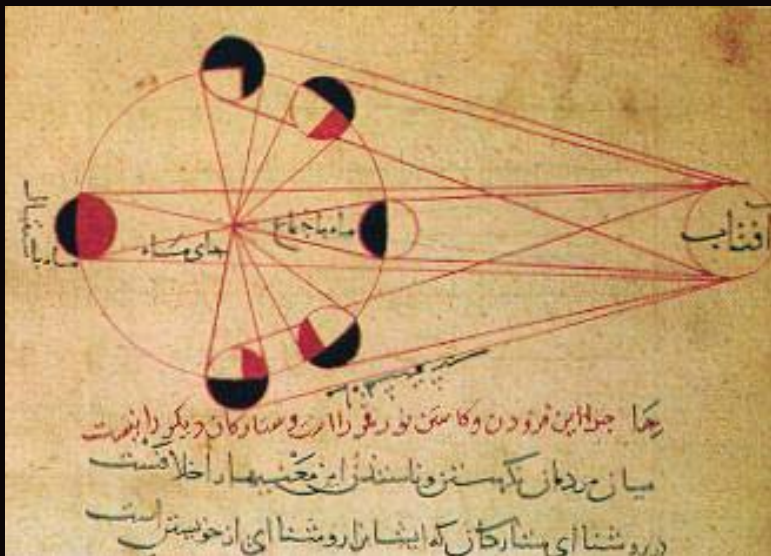 افتاب
ماه باجتماع
جای ما
ماه باستقبال
چرا این فزودن و کاستن نور قمر را است و ستارکان دیکر را نیست
میان مردمان نکرستن و باسندن این معنیها را خلافست
در روشنا ای ستارکان که ایشانرا روشنا ای از خویشتن است